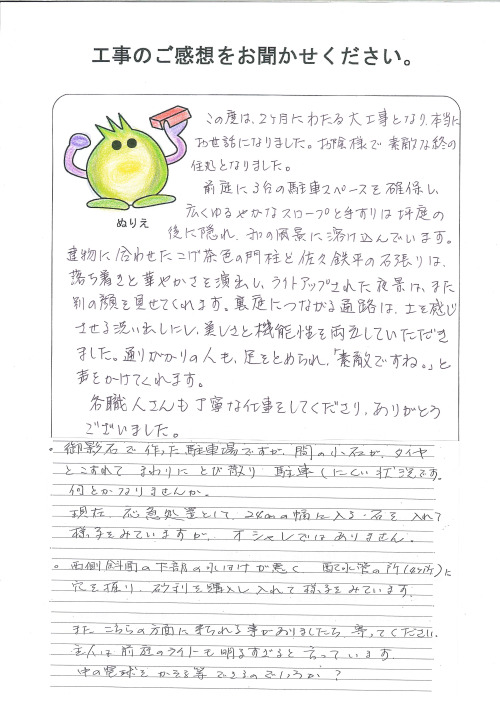 工事のご感想をお聞かせください。
この度は、2ヶ月にわたる大工事となり、本当に
お世話になりました。お陰様で素敵な終の
住処となりました。
前庭に3台の駐車スペースを確保し、
広くゆるやかなスロープと手すりは坪庭の
後に隠れ、和の風景に溶け込んでいます。
ぬりえ
建物に合わせたこげ茶色の門柱と佐久鉄平の石張りは、
落ち着きと華やかさを演出し、ライトアップされた夜景は、また
別の顔を見せてくれます。裏庭につながる通路は、土を感じ
させる洗い出しにし、美しさと機能性を両立していただき
ました。通りがかりの人も、足をとめられ、「素敵ですね。」と
声をかけてくれます。
各職人さんも丁寧な仕事をしてくださり、ありがとう
ございました。
。御影石で作った駐車場ですが、間の小石が、タイヤ
とこすれて まわりにとび散り 駐車しにくい状況です。
何とかなりませんか。
現在、応急処置として、24cmの幅に入る石を入れて
様子をみていますが、オシャレではありません。
。西側斜面の下部の水はけが悪く 配水管の所(4ヶ所)に
穴を掘り、砂利を購入し入れて様子をみています。
また こちらの方面に来られる事がありましたら 寄ってください。
主人は前庭のライトも明るすぎると言っています。
中の電球をかえる等できるのでしょうか?